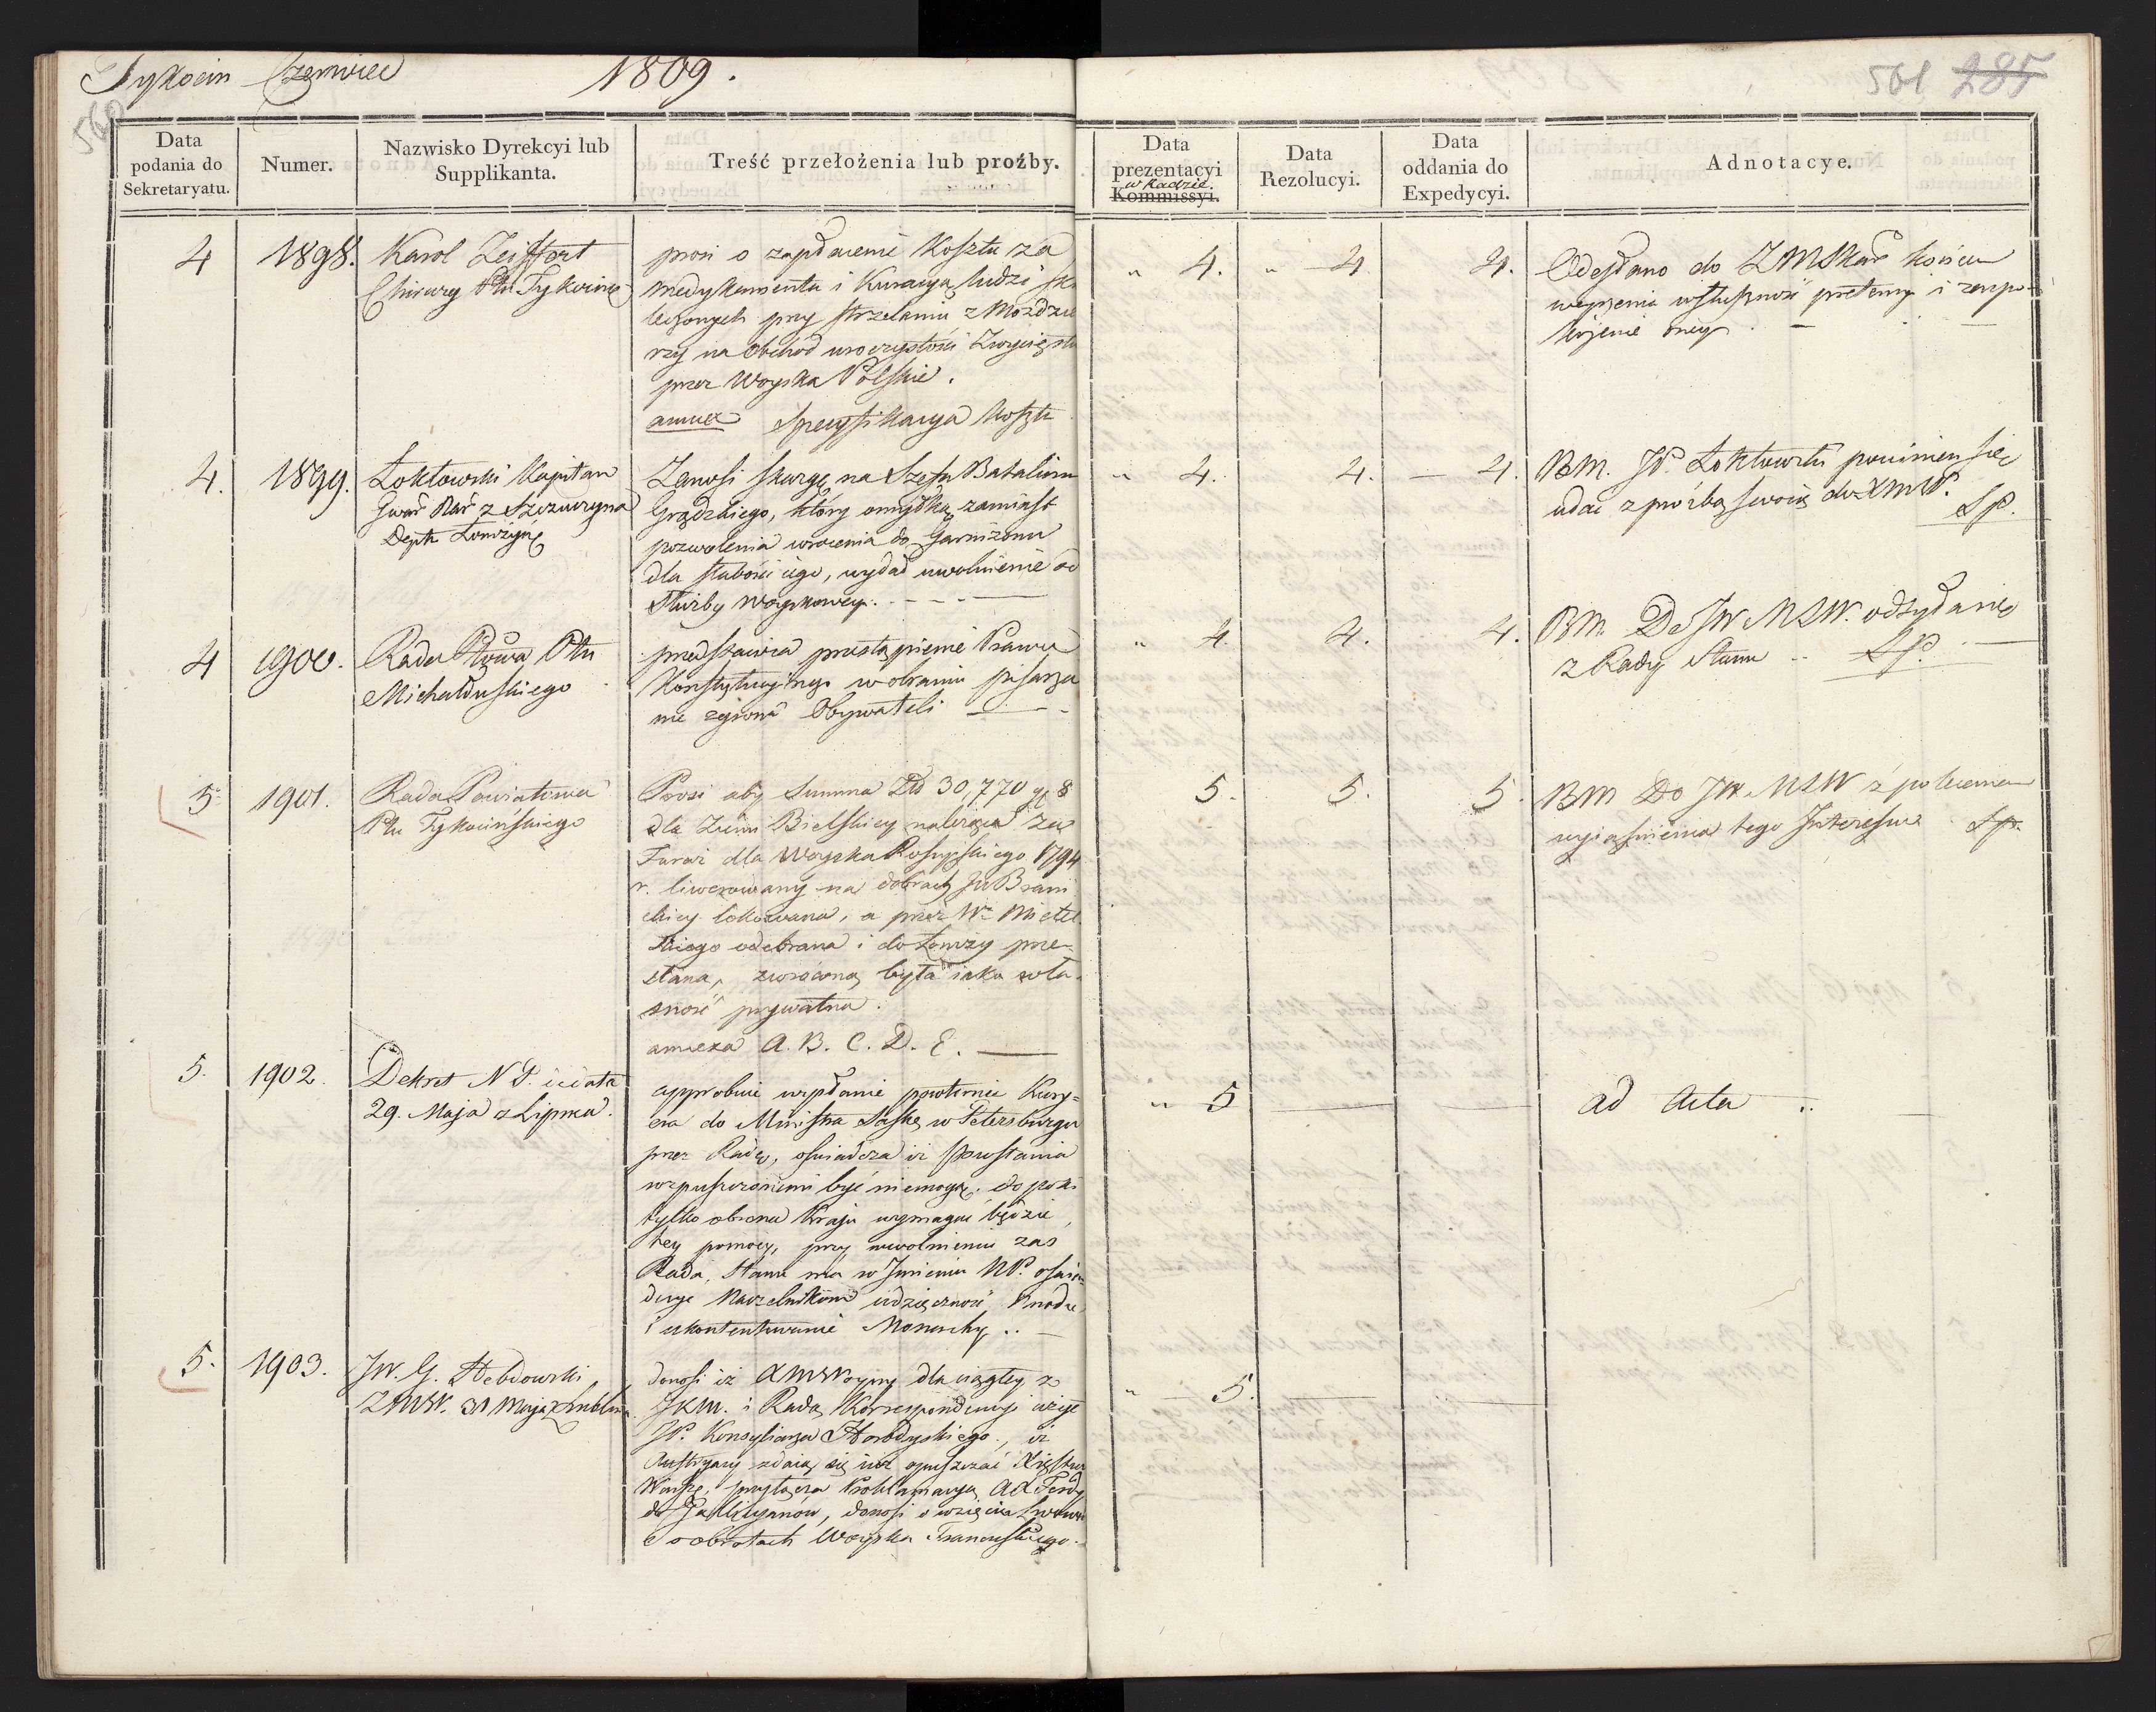 Tykocin Czerwiec 1809.
560
561 285
Data podania do Sekretaryatu.
Numer.
Nazwisko Dyrekcyi lub Supplikanta.
Treść przełożenia lub proźby.
Data prezentacyi w Radzie. Kommissyi.
Data Rezolucyi.
Data oddania do Expedycyi.
Adnotacye.
4 1898. Karol Zeiffert
Chirurg Ptu Tykocińs
prosi o zapłacenie Kosztu za
medykamenta i Kuracyą ludzi ska
leczonych przy strzelaniu z Moździe
rzy na Obchód uroczystości Zwycięstw
przez Woyska Polskie.
annex Specyfikacya Kosztu
" 4. " 4 4.
Odesłano do ZMSkar końcem
weyrzenia w słuszność pretensyi i zaspo-
kojenie oney.
4. 1899. Łoktowski Kapitan
Gwar Nar z Szczuczyna
Deptu Łomżyńs
Zanosi skargę na Szefa Batalionu
Grądzkiego, który omyłką zamiast
pozwolenia wrócenia do Garnizonu
dla słabości iego, wydał uwolnienie od
służby woyskowey.
" 4. 4. 4.
BM. JP. Łoktowski powinien się
udać z proźbą swoią do XMW.
Sp.
4 1900. Rada Ptowa Ptu
Michałduskiego
przedstawia przestąpienie Prawa
Konstytucyinego w obraniu pisarza
nie z grona Obywateli
" 4. 4. 4.
BM. Do JW MSW. odsyłanie
z Rady Stanu Sp.
5. 1901. Rada Powiatowa
Ptu Tykocińskiego
Prosi aby Summa Złł 30,770 gr 8
dla Ziemi Bielskiey należąca za
Furaż dla Woyska Rossyiskiego 1794
r. liwerowany na dobrach JW Brani
ckiey lokowana, a przez W. Mictel
skiego odebrana i do Łomży prze-
słana, zwróconą była iako wła-
sność prywatna.
annexa A. B. C. D. E.
5. 5. 5.
BM Do JW. MSW z poleceniem
wyiaśnienia tego Interessu Sp.
5. 1902. Dekret NP. de data
29. Maja z Lipska.
approbuie wysłanie powtórnie Kury-
era do Ministra Saskę w Petersburgu
przez Radę, oświadcza iż Powstania
rozpuszczonemi być niemogą, dopóki
tylko obrona Kraju wymagać będzie
tey pomocy, przy uwolnieniu zaś
Rada Stanu ma w Jmieniu NP. oświa
dczyć Naczelnikom wdzięczność Kraju
i ukontentowanie Monarchy.
" 5
ad Acta
5. 1903. JW. G. Hebdowski
ZMW. 31 Maja z Lublina
donosi iż XMWoyny dla ciągłey z
JKM. i Radą Korrespondencyi użył
JP. Konsyliarza Horodyskiego, iż
Austryacy zdaią się iuż opuszczać Xięstwo
Warsz, przyłącza Proklamacyą AX Ferdy
do Gallicyanów, donosi o wzięciu Lwowa
i o obrotach Woyska Francuskiego.
" 5.